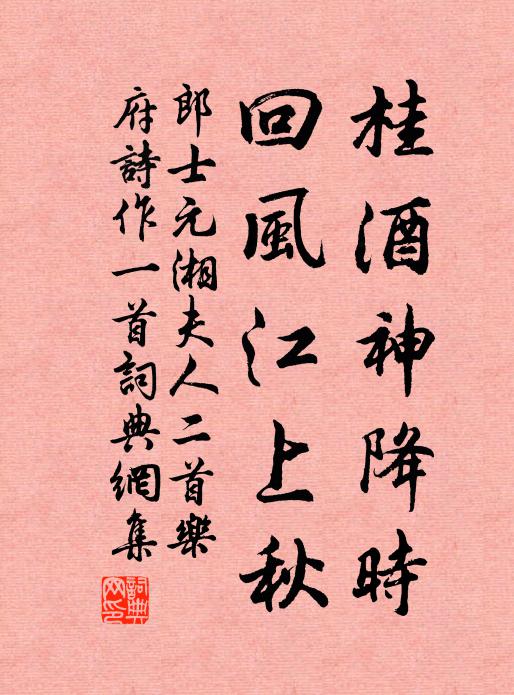 桂酒神降時
回風江上秋
郎士元湘夫人二首樂
府詩作一首詞典網集
詞典网印